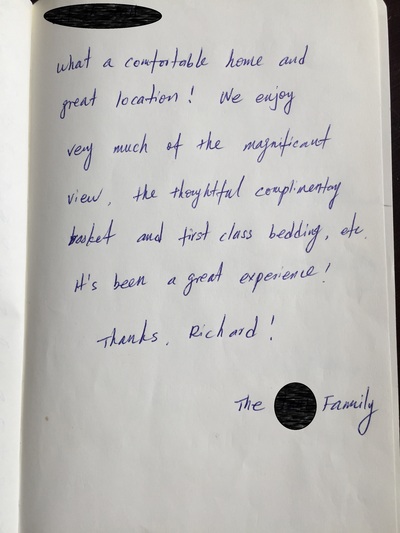 what a comfortable home and
great location! We enjoy
very much of the magnificant
view, the thoughtful complimentary
basket and first class bedding, etc.
It's been a great experience!
Thanks, Richard!
The Family